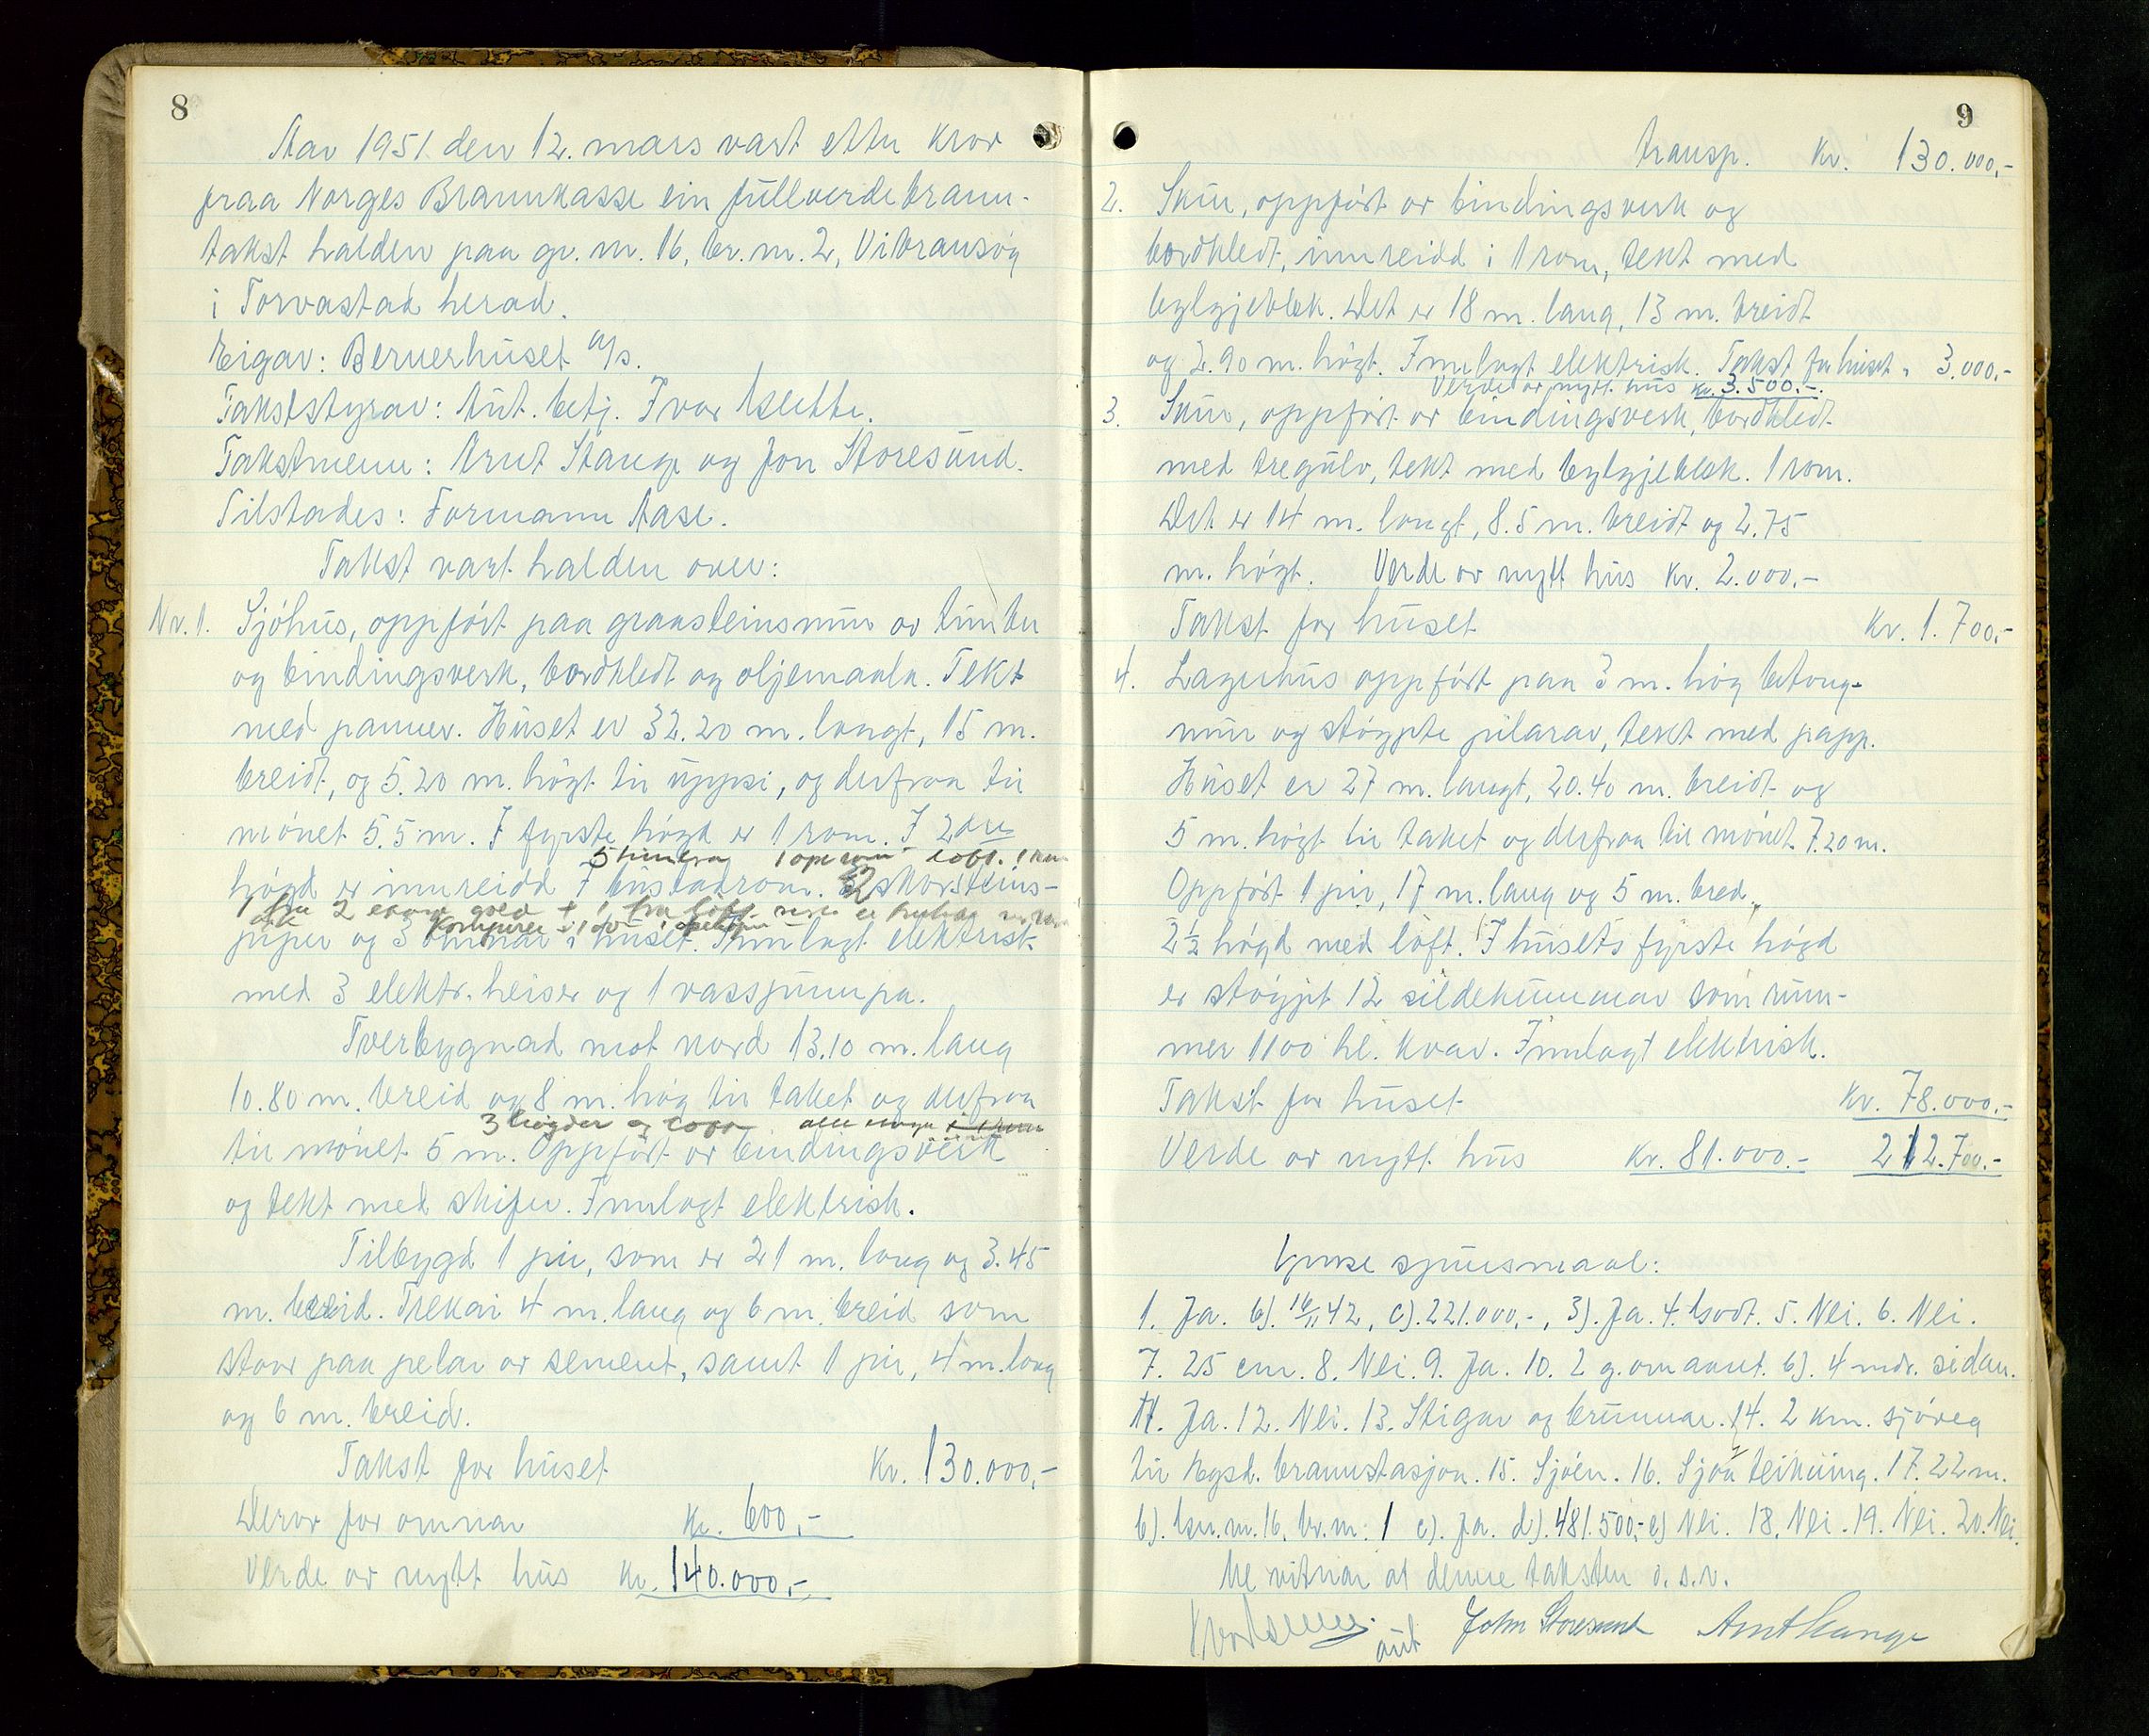 8
Aar 1951 den 12. mars vart etter krav
fraa Norges Brannkasse ein fullverdebrann-
takst halden paa gr. nr. 16, br. nr. 2, Vibransøy
i Torvastad herad.
Eigar: Bernerhuset A/s.
Takststyrar: Aut. betj. Ivar
Takstmenn: Arnt Stange og Jon Storesund.
Tilstades: Formann Aase.
Takst vart halden over:
Nr. 1. Sjøhus, oppført paa graasteinsmur av timber
og bindingsverk, bordkledt og oljemaala. Tekt
med pannes. Huset er 32.20 m. langt, 15 m.
breidt, og 5.20 m. høgt til uppsi, og derfraa til
mønet 5.5 m. I fyrste høgd er 1 rom. I 2dre
5 1 ope rom loft. 1 rom
høgd er innreidd 7 bustadrom. 2 skorsteins-
1 fra 2 + 1 fra loft
piper og 3 omnar i huset. Innlagt elektrisk
med 3 elektr. heiser og 1 vasspumpa.
Tverbygnad mot nord 13.10 m. lang
10.80 m. breid og 8 m. høg til taket og derfraa
3 høgder og loft alle
til mønet 5 m. Oppført av bindingsverk
og tekt med skifer. Innlagt elektrisk.
Tilbygd 1 pir, som er 21 m. lang og 3.45
m. breid. Trekai 4 m. lang og 6 m. breid som
staar paa pelar av sement, samt 1 pir, 4 m. lang
og 6 m. breid.
Takst for huset Kr. 130.000,-
Derav for omnar Kr. 600,-
Verde av nytt hus Kr. 140.000,-
9
transp. Kr. 130.000,-
2. Skur, oppført av bindingsverk og
bordkledt, innreidd i 1 rom, tekt med
bylgjeblek. Det er 18 m. lang, 13 m. breidt
og 2.90 m. høgt. Innlagt elektrisk. Takst for huset " 3.000,-
Verde av nytt hus kr. 3.500.-
3. Skur, oppført av bindingsverk, bordkledt
med tregulv, tekt med bylgjeblek. 1 rom.
Det er 14 m. langt, 8.5 m. breidt og 2.75
m. høgt. Verde av nytt hus Kr. 2.000.-
Takst for huset Kr. 1.700,-
4. Lagerhus oppført paa 3 m. høg betong-
mur og støypte pilarar, tekt med papp.
Huset er 27 m. langt, 20.40 m. breidt og
5 m. høgt til taket og derfraa til mønet 7.20 m.
Oppført 1 pir, 17 m. lang og 5 m. bred,
2½ høgd med loft. I husets fyrste høgd
er støypt 12 sildekummar som rum-
mer 1100 hl. kvar. Innlagt elektrisk.
Takst for huset Kr. 78.000.-
Verde av nytt hus Kr. 81.000.- 212.700.-
Ymse spursmaal:
1. Ja. b). 16/11 42, c). 221.000,-, 3). Ja. 4. Godt. 5. Nei. 6. Nei.
7. 25 cm. 8. Nei. 9. Ja. 10. 2 g. om aaret. b). 4 mdr. sidan.
11. Ja. 12. Nei. 13. Stigar og brunnar. 14. 2 km. sjøveg
til Hgsd. brannstasjon. 15. Sjøen. 16. Sjaa teikning. 17. 22 m.
b). Gn. nr. 16, br. nr. 1 c). Ja. d). 481.500,- e) Nei. 18. Nei. 19. Nei. 20. Nei.
Me vitnar at denne taksten o. s. v.
aut John Storesund Arnt Stange